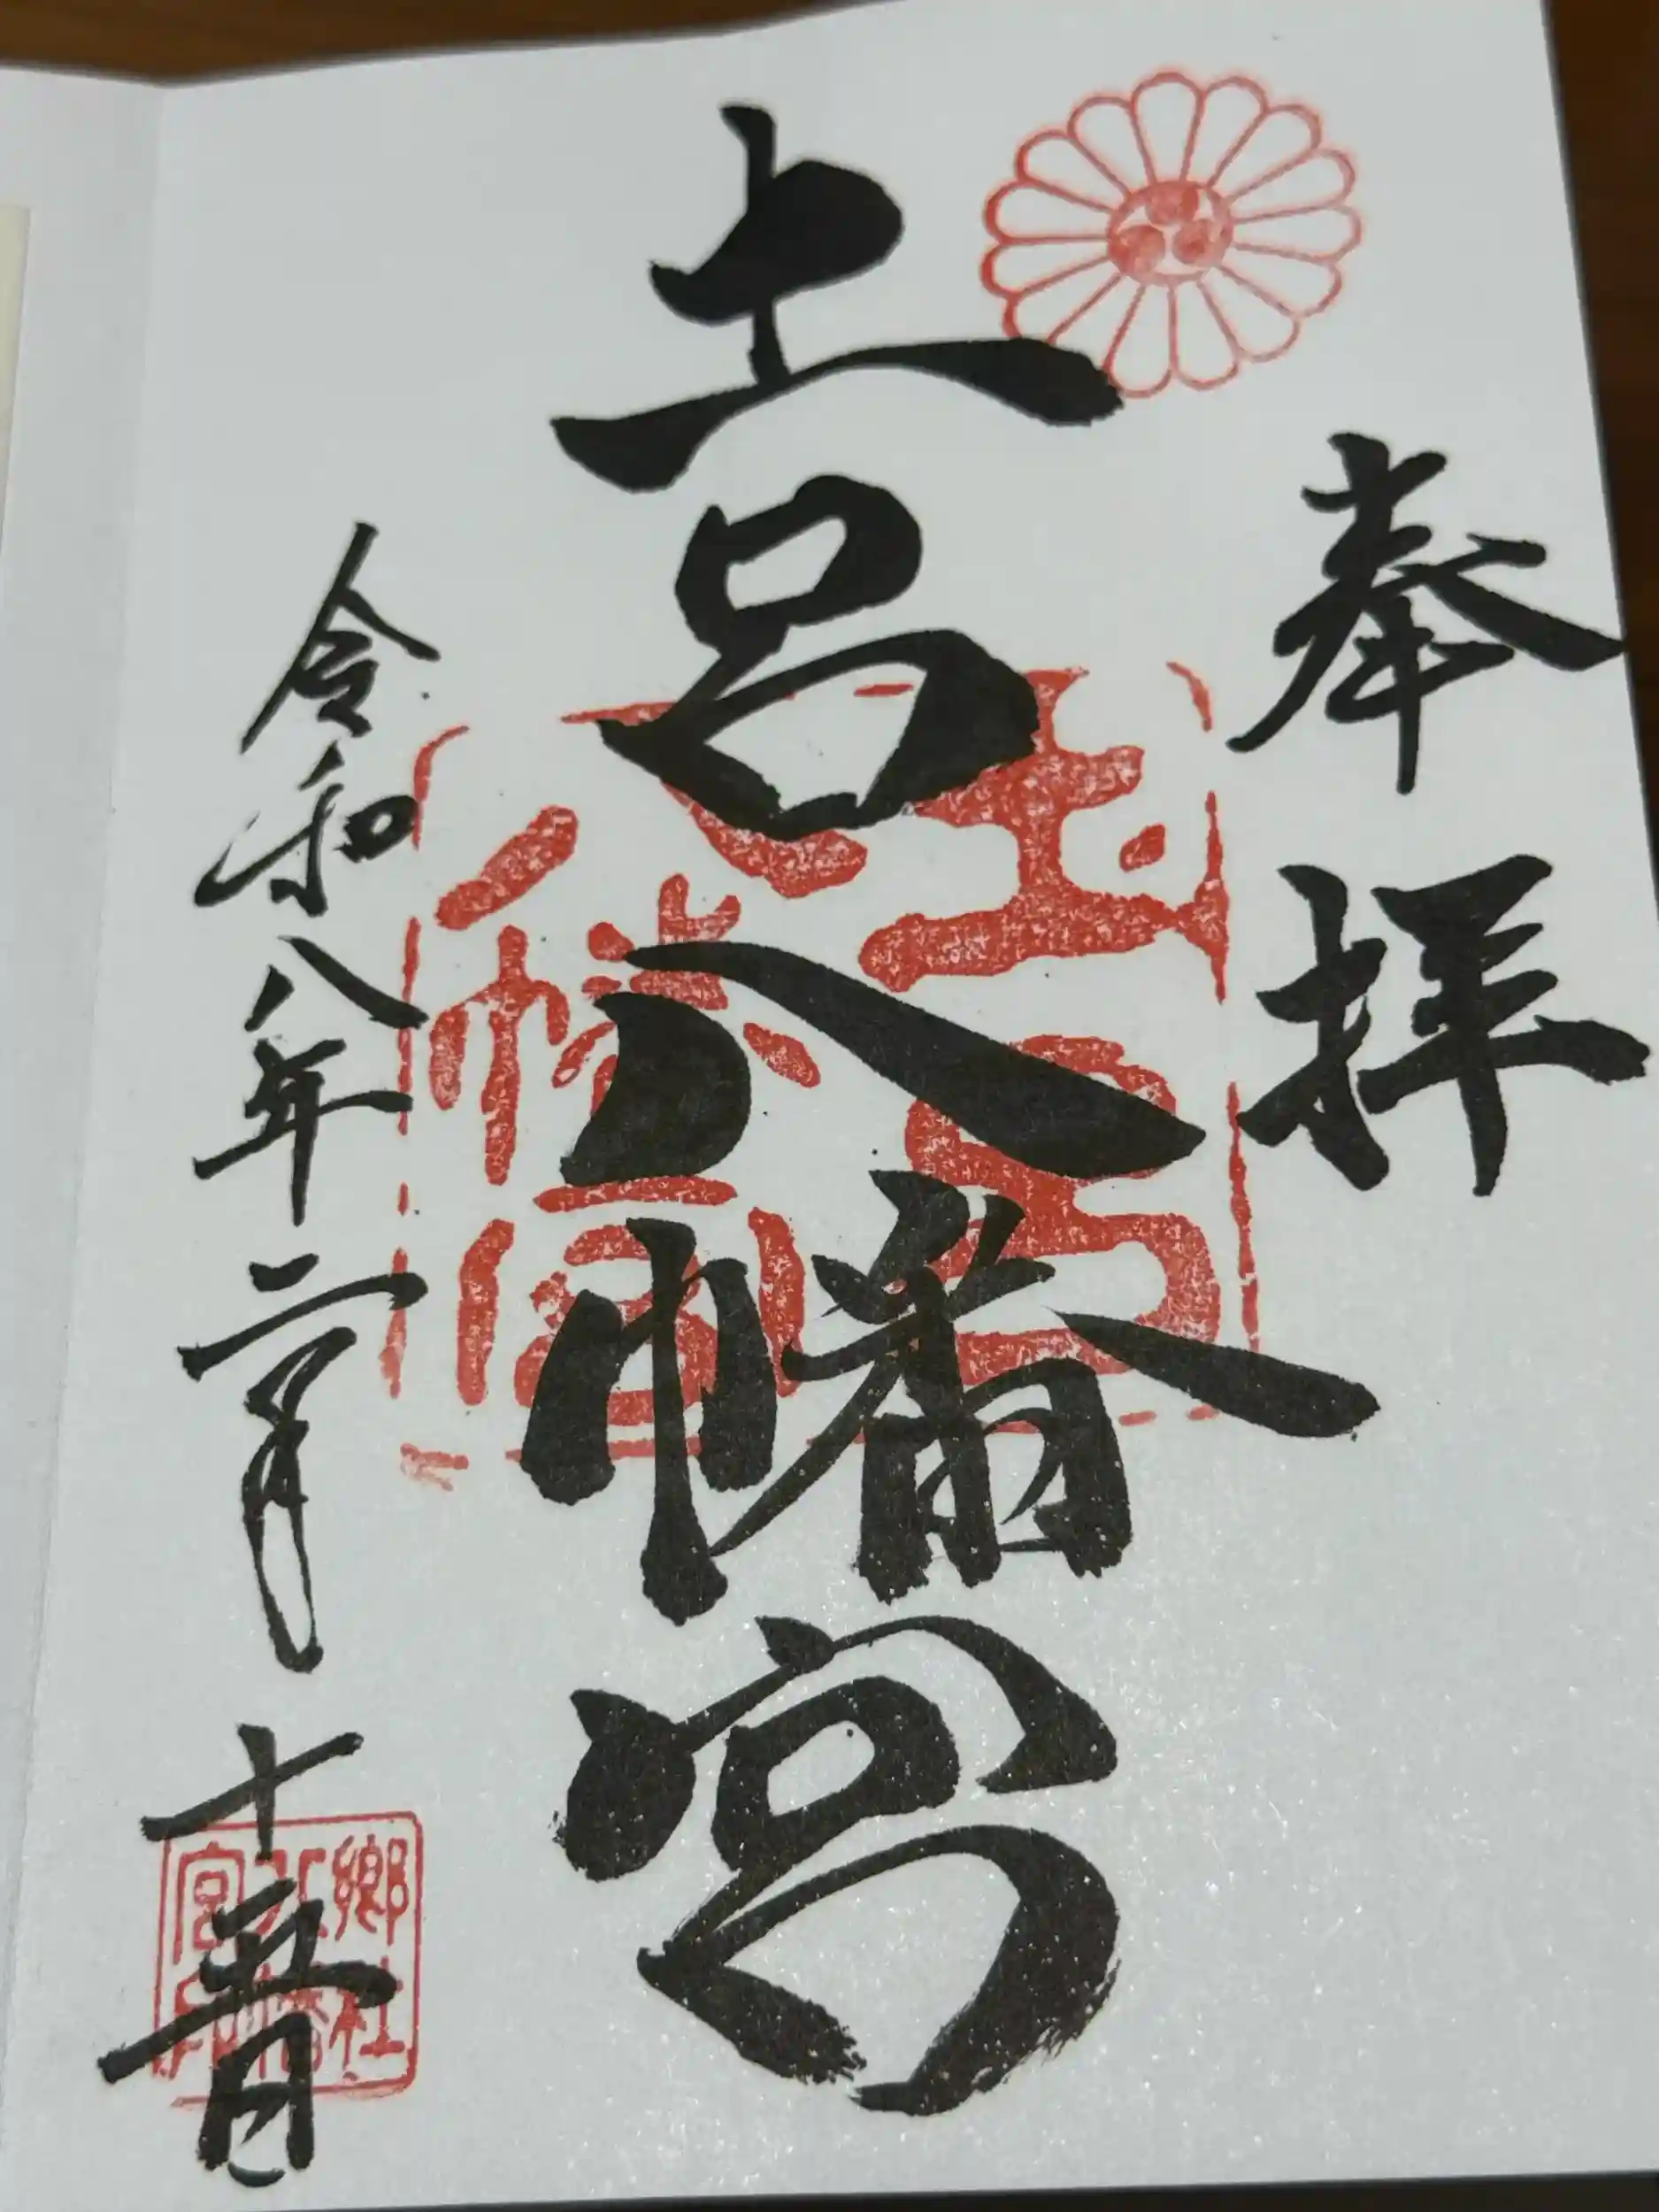 奉拝
土呂八幡宮
土呂八幡宮
令和八年二月十五日
郷社八幡宮印